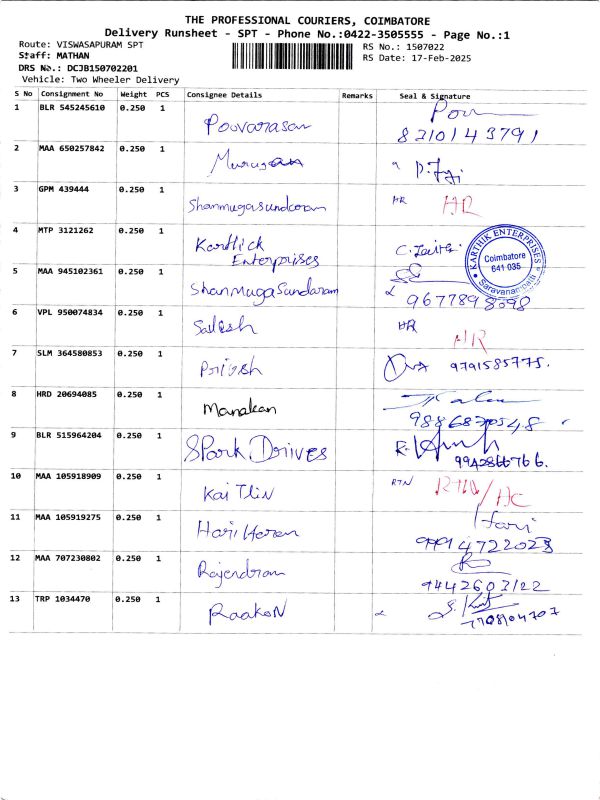 THE PROFESSIONAL COURIERS, COIMBATORE
Delivery Runsheet - SPT - Phone No.:0422-3505555 - Page No.:1
Route: VISWASAPURAM SPT
RS No.: 1507022
Staff: MATHAN
RS Date: 17-Feb-2025
DRS No.: DCJB150702201
Vehicle: Two Wheeler Delivery
S No Consignment No Weight PCS Consignee Details Remarks Seal & Signature
1 BLR 545245610 0.250 1 Poovarasan
8210143791
2 MAA 650257842 0.250 1 Murugan
3 GPM 439444 0.250 1 Shanmugasundaram HR HR
4 MTP 3121262 0.250 1 Karthick
Enterprises
KARTHIK ENTERPRISES
Coimbatore
641 035
Saravanampatti
5 MAA 945102361 0.250 1 Shanmugasundaram
9677898098
6 VPL 950074834 0.250 1 Sailesh HR HR
7 SLM 364580853 0.250 1 Pritish 9791585775.
8 HRD 20694085 0.250 1 Manakan
9 BLR 515964204 0.250 1 SPark Drives
10 MAA 105918909 0.250 1 Kai Tlin RTN
11 MAA 105919275 0.250 1 Hari Haran Hari
12 MAA 707230802 0.250 1 Rajendran
9442603122
13 TRP 1034470 0.250 1 RaakoN